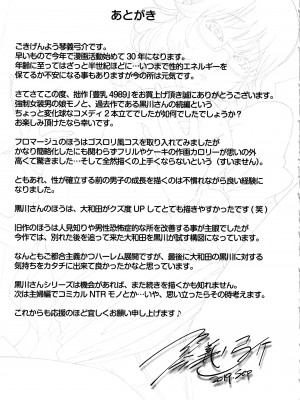 あとがき
ごきげんよう琴義弓介です。
早いもので今年で漫画活動始めて30年になります。
年齢に至ってはざっと半世紀ほどに…いつまで性的エネルギーを
保てるか不安になる事もありますが今の所は元気です。
さてさてこの度、拙作『豊乳4989』をお買上げ頂き誠にありがとうございます。
強制女装男の娘モノと、過去作である黒川さんの続編という
ちょっと変化球なコメディ2本立てでしたが如何でしたでしょうか?
お楽しみ頂けたなら幸いです。
フロマージュのほうはゴスロリ風コスを取り入れてみましたが
かなり簡略化したにも関わらずフリルやケーキの作画カロリーが思いの外
高くて驚きました…そして全然描くの上手くならないという(すいません)。
ともあれ、性が確立する前の男子の成長を描くのは不慣れながら良い経験に
なりました。
黒川さんのほうは、大和田がクズ度UPしてとても描きやすかったです(笑)
旧作のほうは人見知りや男性恐怖症的な所を改善する事が主眼でしたが
今作では、別れた後を追って来た大和田を黒川が試す構図になっています。
なんともご都合主義かつハーレム展開ですが、最後に大和田の黒川に対する
気持ちをカタチに出来て良かったかなと思っています。
黒川さんシリーズは機会があれば、また続きを描くかも知れません。
次は主婦編でコミカルNTRモノとか…いや、思い立ったらその時考えます。
これからも応援のほど宜しくお願い申し上げます♪
琴義弓介